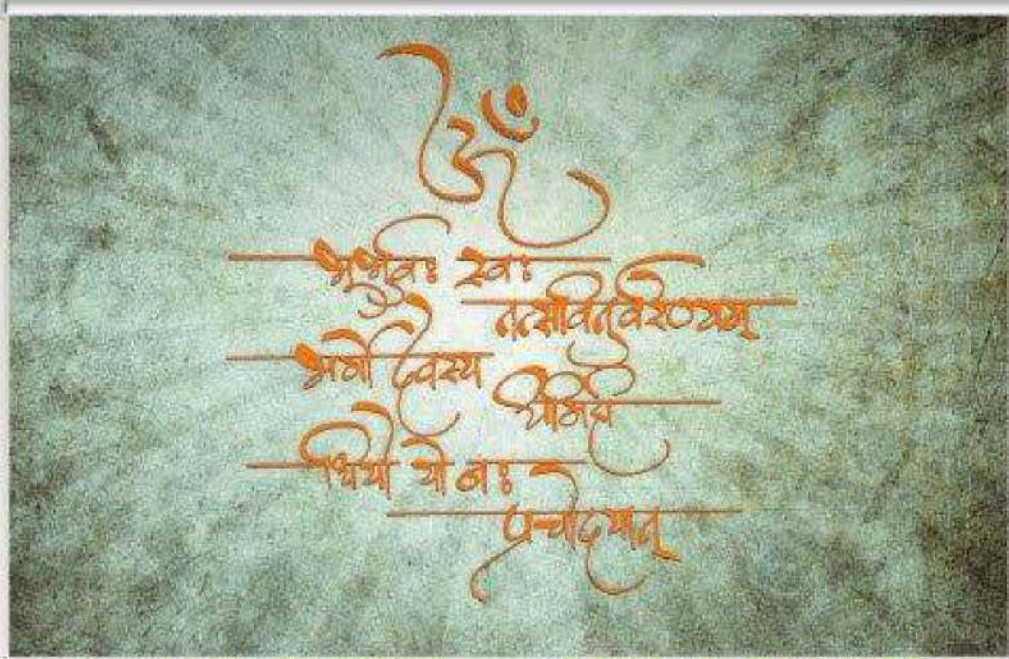 ॐ
भूर्भुवः स्वः
तत्सवितुर्वरेण्यम्
भर्गो देवस्य
धीमहि
धियो यो नः
प्रचोदयात्